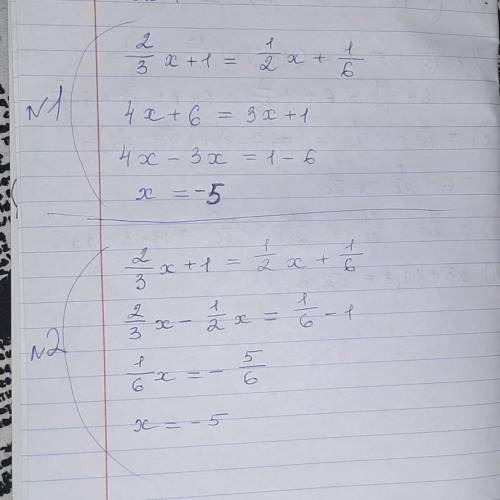 N1
2/3 x + 1 = 1/2 x + 1/6
4x + 6 = 3x + 1
4x - 3x = 1 - 6
x = -5
N2
2/3 x + 1 = 1/2 x + 1/6
2/3 x - 1/2 x = 1/6 - 1
1/6 x = - 5/6
x = -5